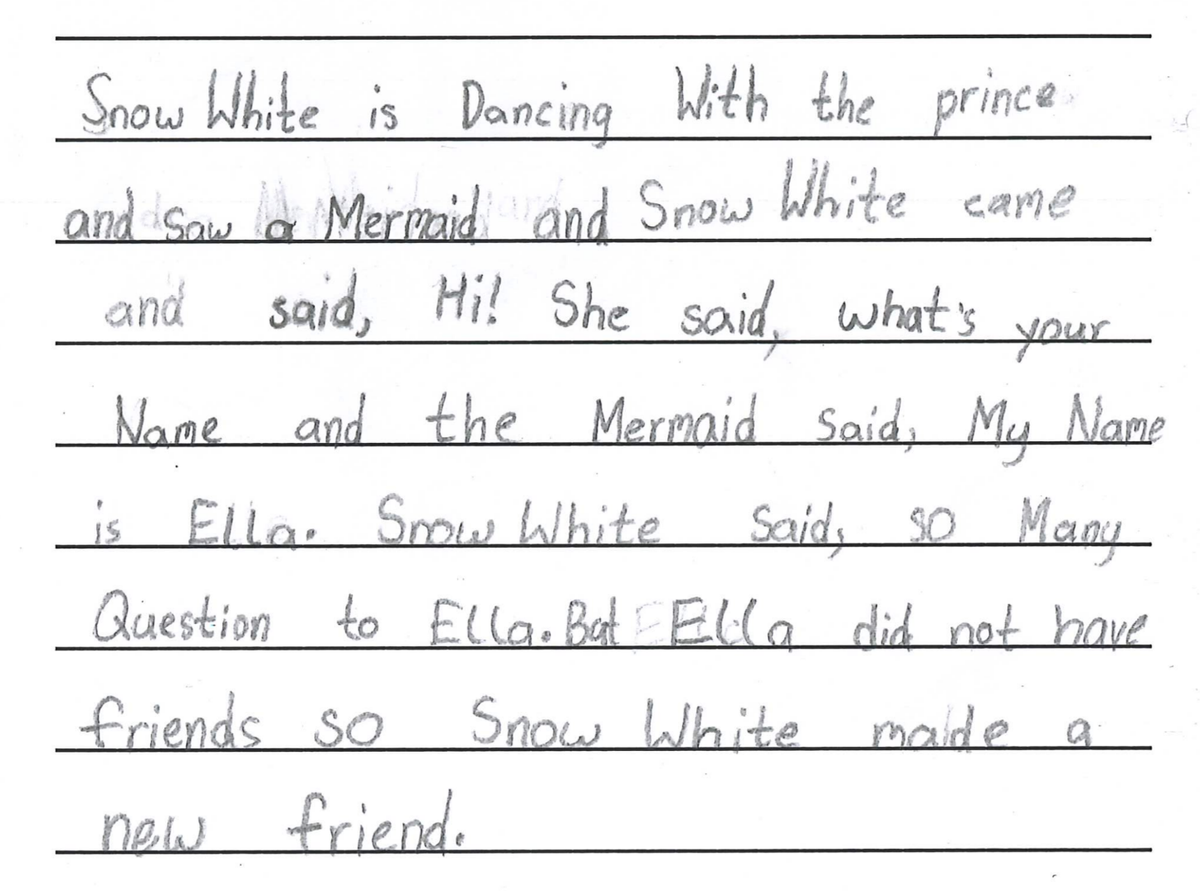 Snow White is Dancing With the prince
and saw a Mermaid and Snow White came
and said, Hi! She said, what's your
Name and the Mermaid said, My Name
is Ella. Snow White said, so Many
Question to Ella. But Ella did not have
friends so Snow White made a
new friend.